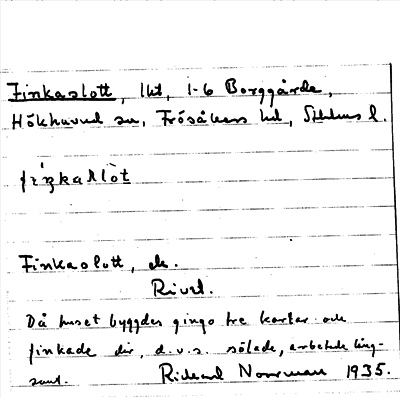 Finkaslott, lht, 1-6 Borggårde,
Hökhuvud sn, Frösåkers hd, Sthlms l.
Finkaslott, ds.
Rivet.
Då huset byggdes gingo tre karlar och
finkade där, d.v.s. sölade, arbetade lång-
samt. Richard Norrman 1935.